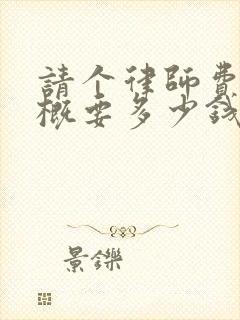 請个律師費
概要多少錢
景鑠